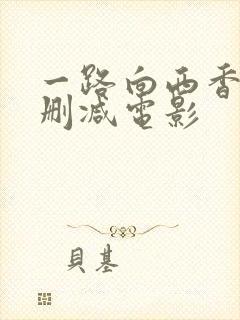 一路向西香
删减电影
貝基